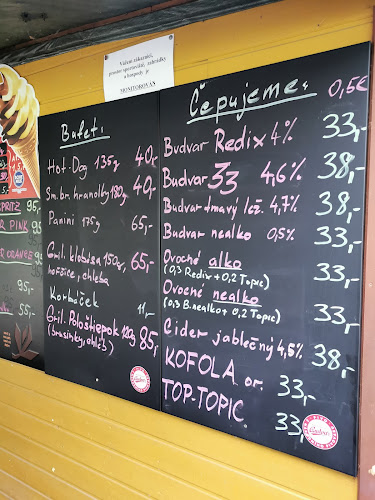 Vážení zákazníci,
prostor sportoviště, zahrádky
a hospody je
MONITOROVÁN
Bufet:
Hot-Dog 135g 40,-
Sm. br. hranolky 180g 40,-
Panini 175g 65,-
Gril. klobása 150g, 65,-
hořčice, chleba
Korbáček 11,-
Gril. Pološtiepok 120g 85,-
(brusinky, chléb)
Čepujeme: 0,5ℓ
Budvar Redix 4% 33,-
Budvar 33 4,6% 38,-
Budvar tmavý lež. 4,7% 38,-
Budvar nealko 0,5% 33,-
Ovocné alko 33,-
(0,3 Redix + 0,2 Topic)
Ovocné nealko 33,-
(0,3 B.nealko + 0,2 Topic)
Cider jablečný 4,5% 38,-
KOFOLA or. 33,-
TOP-TOPIC 33,-
PRITZ 95,-
R PINK 95,-
R ORANGE
95,-
55,-